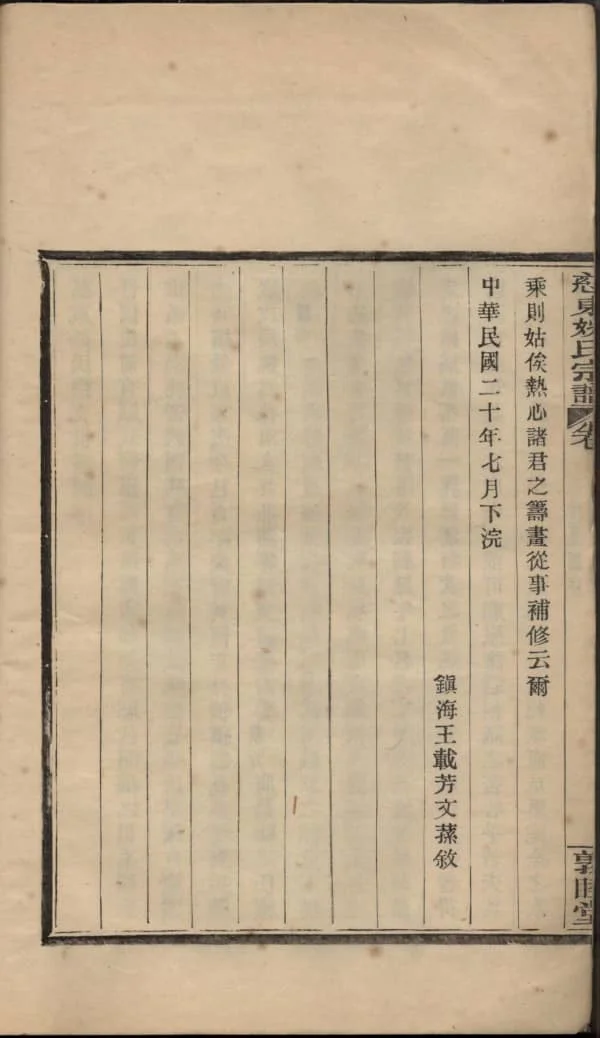 慈東姚氏宗譜
卷
乘則姑俟熱心諸君之籌畫從事補修云爾
中華民國二十年七月下浣
鎮海王載芳文蓀敘
敦睦堂